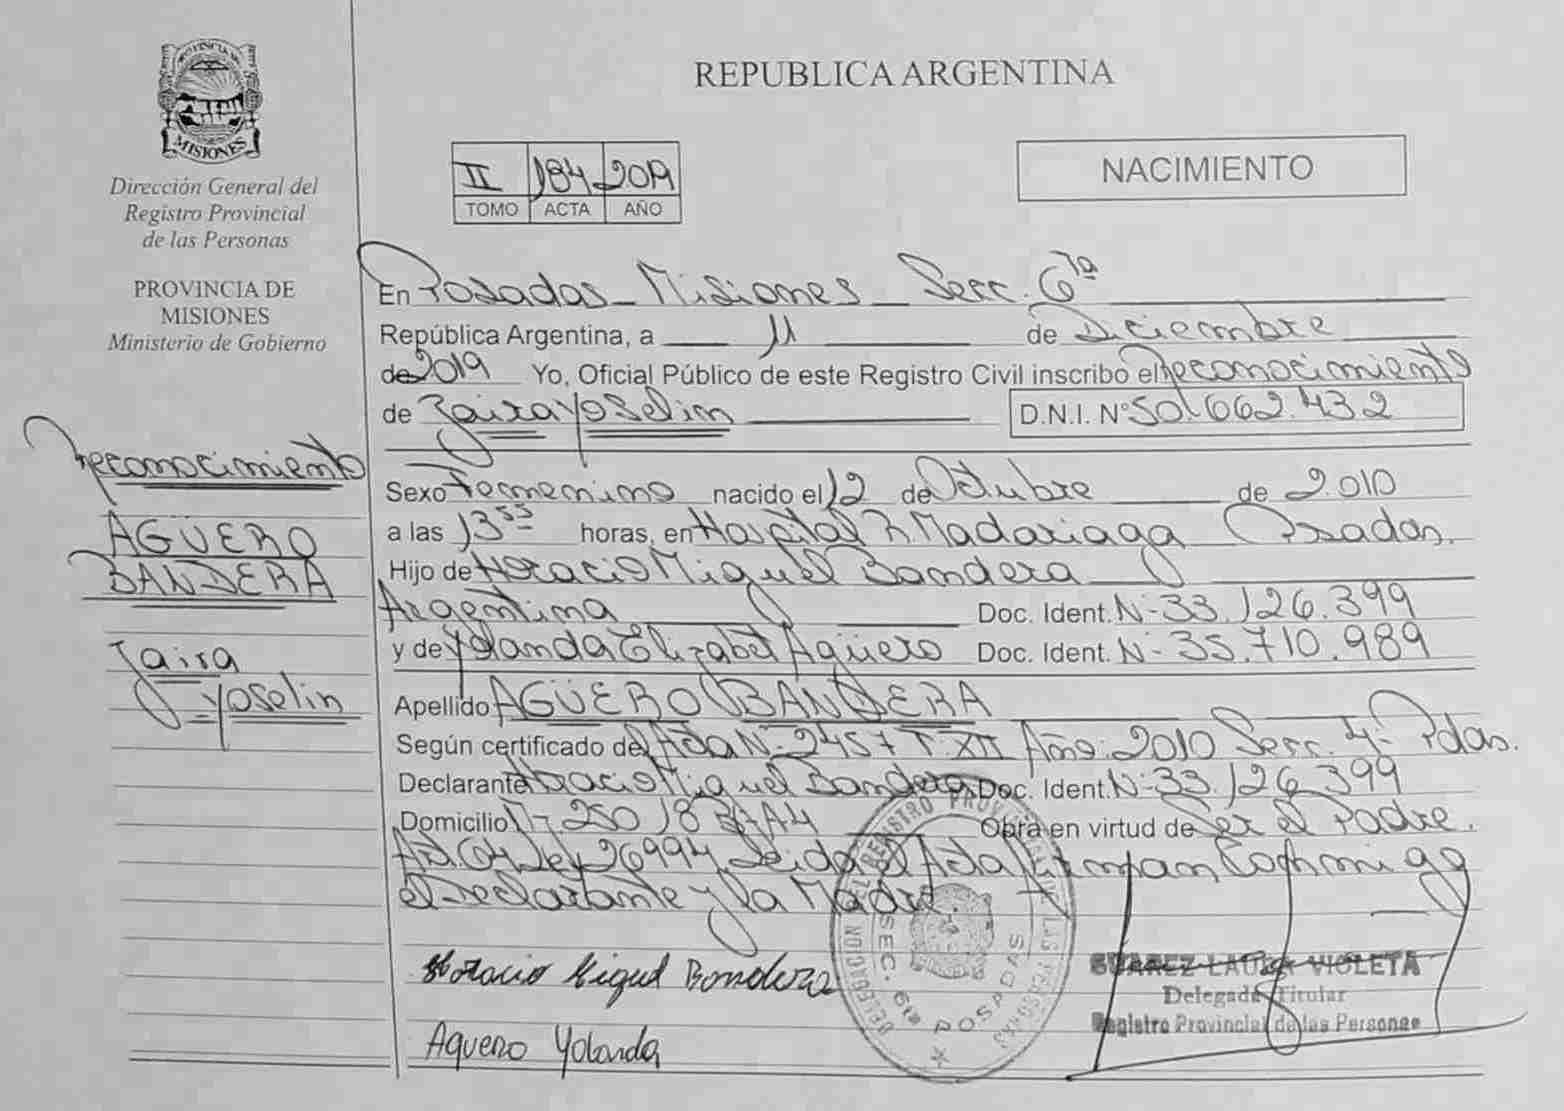 REPUBLICA ARGENTINA
PROVINCIA DE
MISIONES
Dirección General del
Registro Provincial
de las Personas
PROVINCIA DE
MISIONES
Ministerio de Gobierno
II 184 2019
TOMO ACTA AÑO
NACIMIENTO
En Posadas - Misiones - Secc. 6ta
República Argentina, a 11 de Diciembre
de 2019 Yo, Oficial Público de este Registro Civil inscribo el reconocimiento
de Zaira Yoselin D.N.I. Nº 50.662.432
reconocimiento
AGÜERO
BANDERA
Zaira
Yoselin
Sexo Femenino nacido el 12 de Octubre de 2.010
a las 13 55 horas, en Hospital R. Madariaga Posadas.
Hijo de Horacio Miguel Bandera
Argentina Doc. Ident. Nº 33.126.399
y de Yolanda Elizabet Agüero Doc. Ident. Nº 35.710.989
Apellido AGÜERO BANDERA
Según certificado de Acta Nº 2457 T: XII Año: 2010 Secc. 4º Pdas.
Declarante Horacio Miguel Bandera Doc. Ident. Nº 33.126.399
Domicilio 250 18 Obra en virtud de ser el Padre.
Art. 64 Ley 26994 Leida el Acta firman conmigo
el Declarante y la Madre.
Horacio Miguel Bandera
Aguero Yolanda
DELEGACION DEL REGISTRO PROVINCIAL DE LAS PERSONAS
SEC. 6ta
POSADAS
SUAREZ LAURA VIOLETA
Delegada Titular
Registro Provincial de las Personas